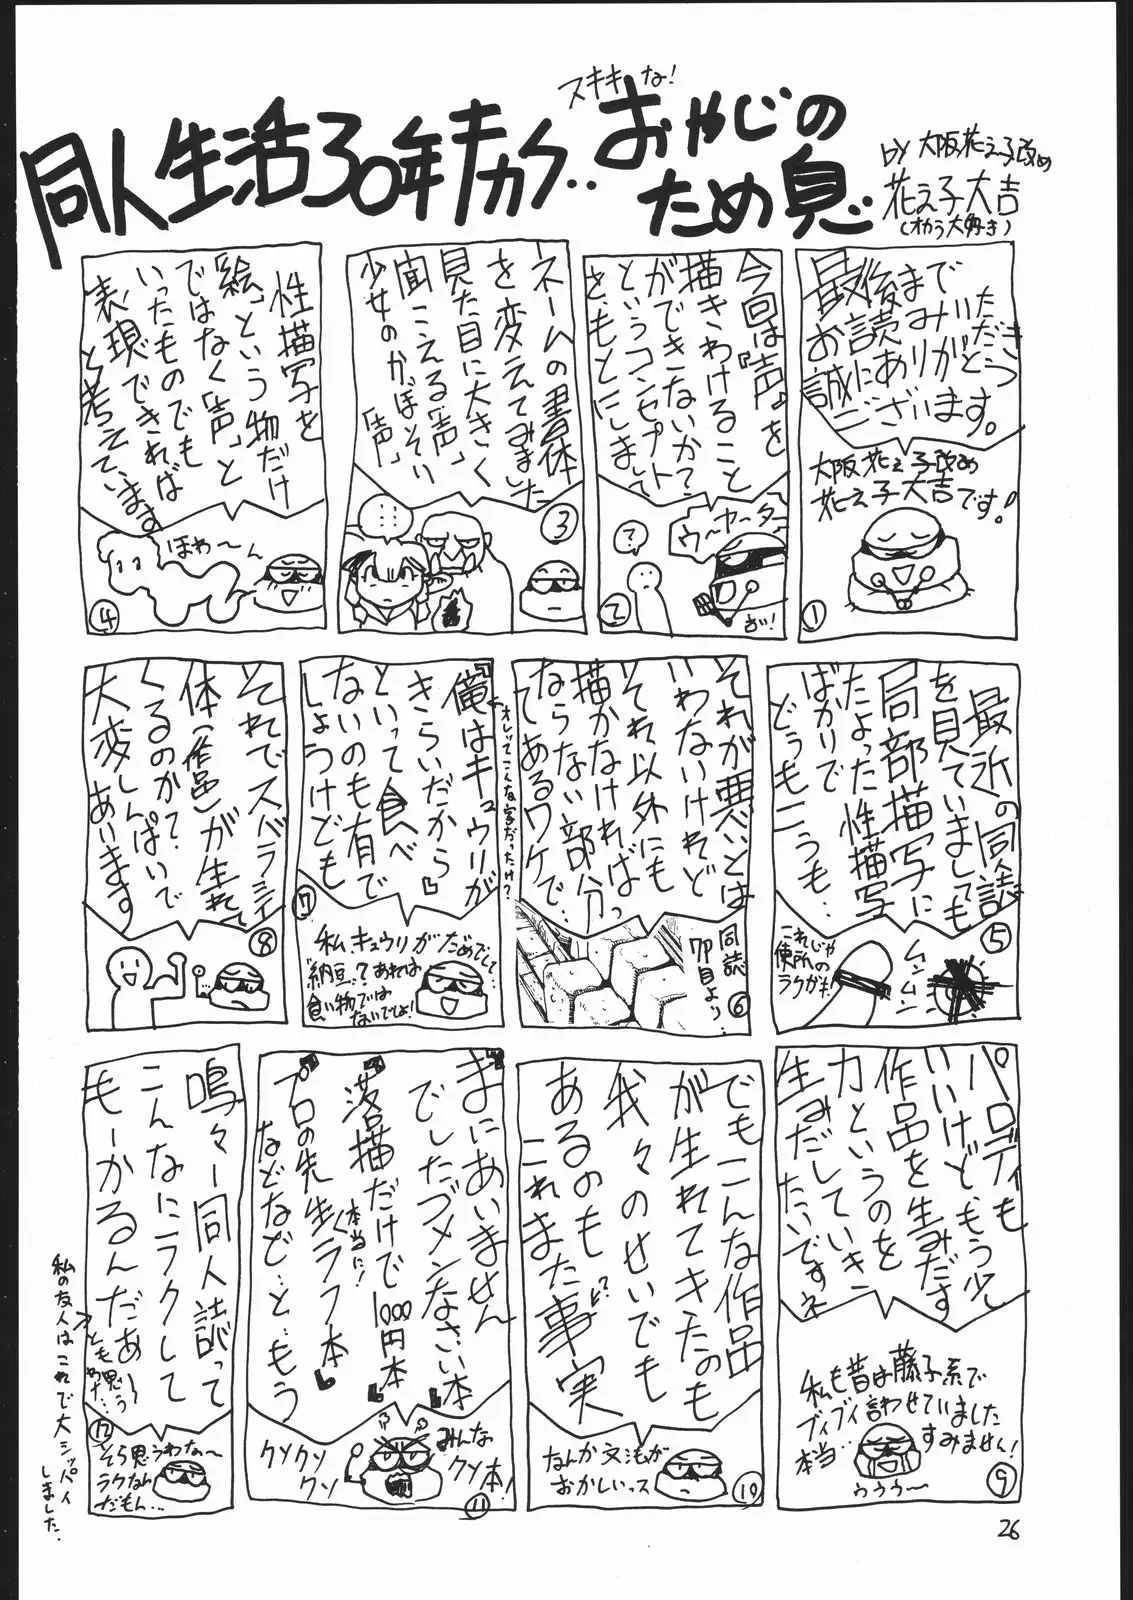 同人生活30年もカケ‥
スキキな!
おやじの
ため息
by 大阪花え子改め
花え子大吉
(オカラ大好き)
最後までいただき
お読みいただきありがとう
誠にございます。
大阪花え子改め
花え子大吉です!
①
今回は『声』を
描きわけること
ができないか?
というコンセプト
をもとにしまして
ウーヤーター
?
おい!
②
ネームの書体
を変えてみました
見た目に大きく
聞こえる「声」
少女のかぼそい
「声」
③
性描写を
「絵」という物だけ
ではなく「声」と
いったものでも
表現できれば
と考えています
ほわ〜ん
④
最近の同人誌
を見ていましても
局部描写に
たよった性描写
ばかりで
どうもこうも‥
これじゃ
便所の
ラクガキ
ムンムン
⑤
それが悪いとは
いわないけれど
それ以外にも
描かなければ
ならない部分っ
てあるワケで‥
同誌
7P目より
⑥
『俺はキュウリが
きらいだから』
といって食べ
ないのも有で
しょうけども
オレってこんな字だったけ?
私、キュウリがだめでして
「納豆」? あれは
食い物では
ないでしょ!
⑦
それでスバラシイ
体(作品)が生れて
くるのかて?
大変しんぱいで
あります
⑧
パロディも
いいけどもう少し
作品を生みだす
力というのを
生みだしていき
たいですネ
私も昔は藤子系で
ブイブイ言わせていました
本当‥すみません!
ううう〜
⑨
でもこんな作品
が生れてきたのも
我々のせいでも
あるのも
これまた事実
なんか文法が
おかしいっス
⑩
『まにあいません
でしたゴメンなさい本』
『落描だけで1000円本』
本当に!
『プロの先生くラフ本』
などなど…ともう
クソクソ
クソ
みんな
クソ本!
⑪
鳴々ー同人誌って
こんなにラクして
もーかるんだぁ〜
とも思う
わナ…
そら思うわな〜
ラクなん
だもん…
⑫
私の友人はこれで大シッパイ
しました.
26